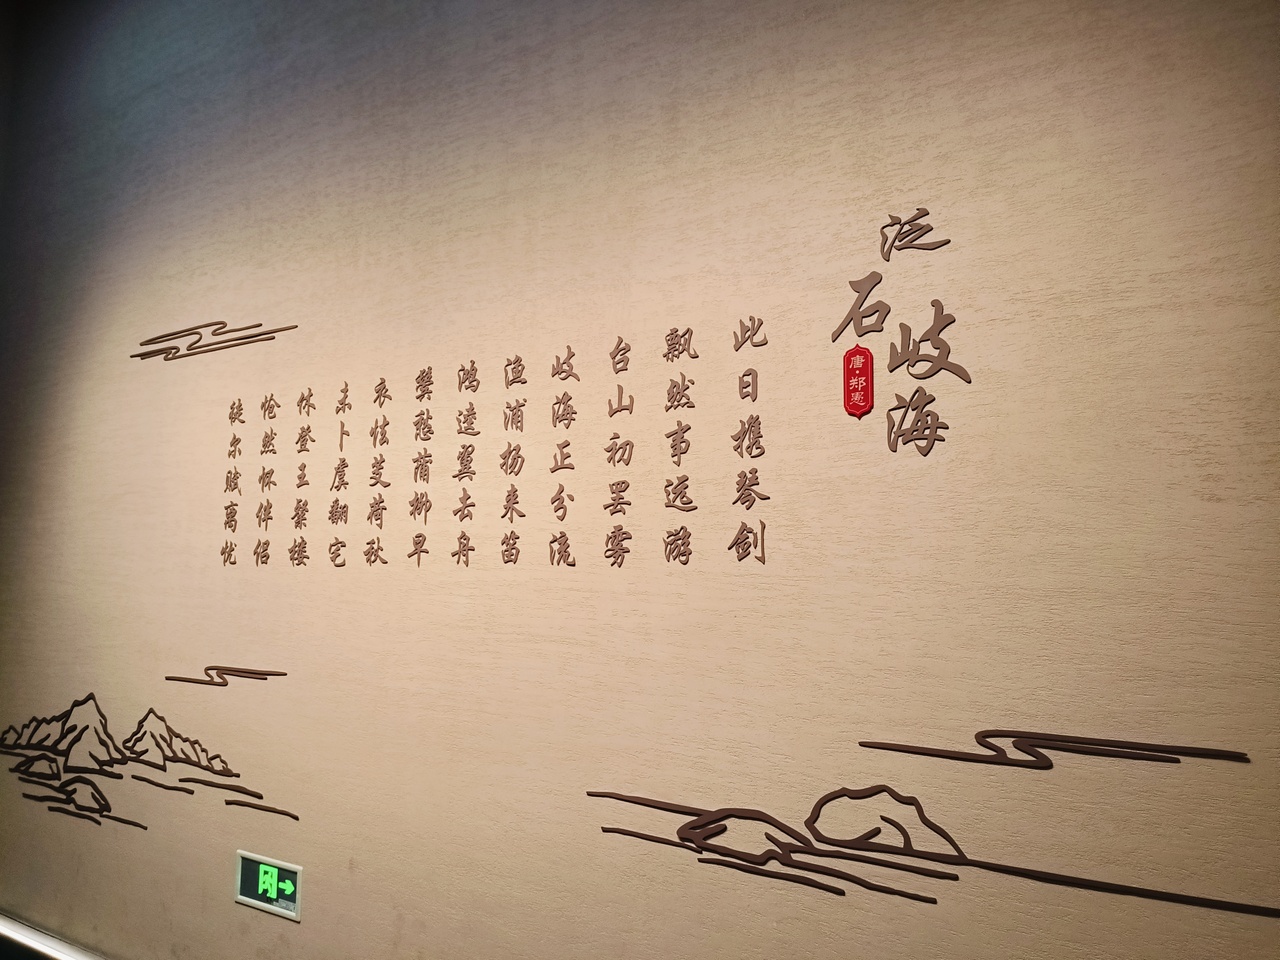 泛
石岐海
唐·郑愚
此日携琴剑
飘然事远游
台山初罢雾
岐海正分流
渔浦扬来笛
鸿逵翼去舟
鬓愁蒲柳早
衣怯芰荷秋
未卜虞翻宅
休登王粲楼
怆然怀伴侣
徒尔赋离忧